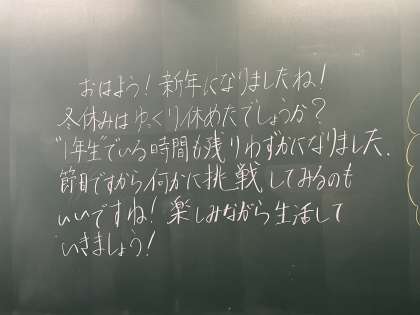 おはよう！新年になりましたね！
冬休みはゆっくり休めたでしょうか？
"1年生"でいる時間も残りわずかになりました．
節目ですから何かに挑戦してみるのも
いいですね！楽しみながら生活して
いきましょう！